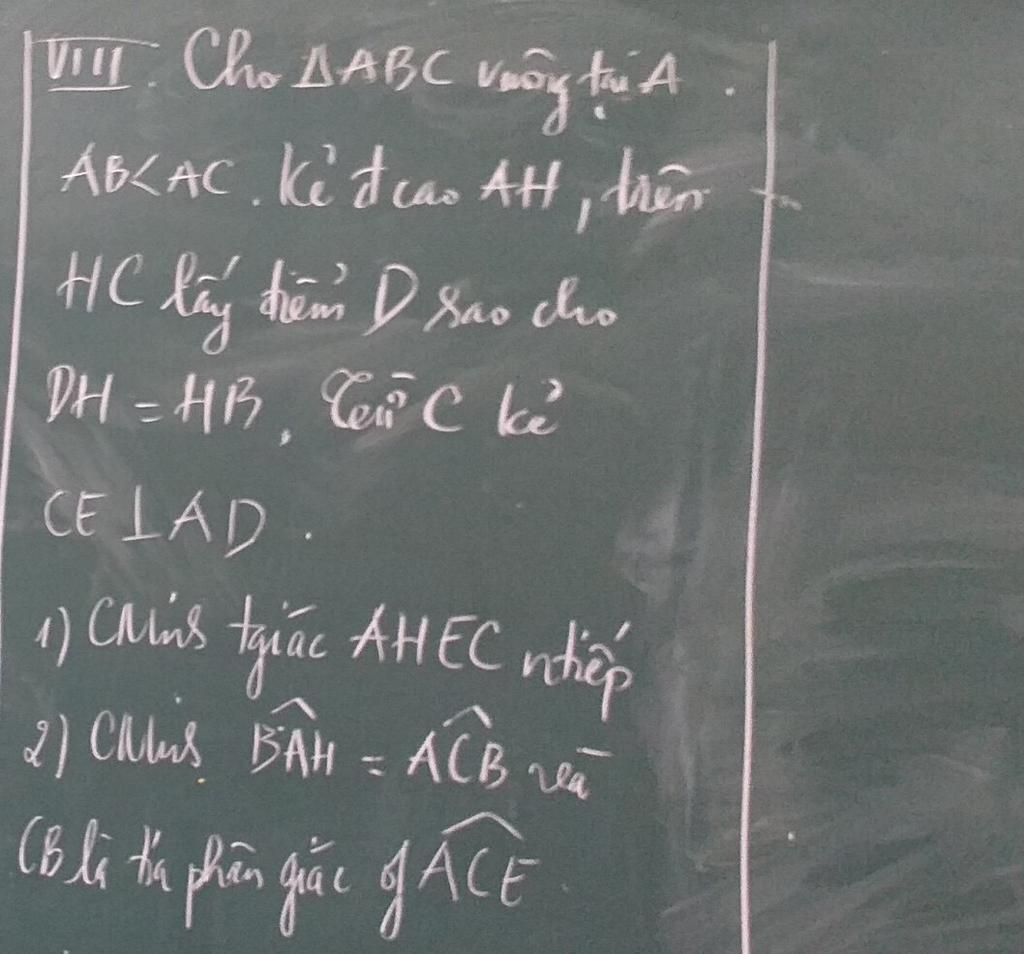 VIII. Cho ΔABC vuông tại A.
AB<AC. Kẻ đ cao AH, trên
HC lấy điểm D sao cho
DH = HB, Từ C kẻ
CE ⊥ AD.
1) CMinh tgiác AHEC ntiếp
2) CMinh \widehat{BAH} = \widehat{ACB} và
CB là tia phân giác of \widehat{ACE}.